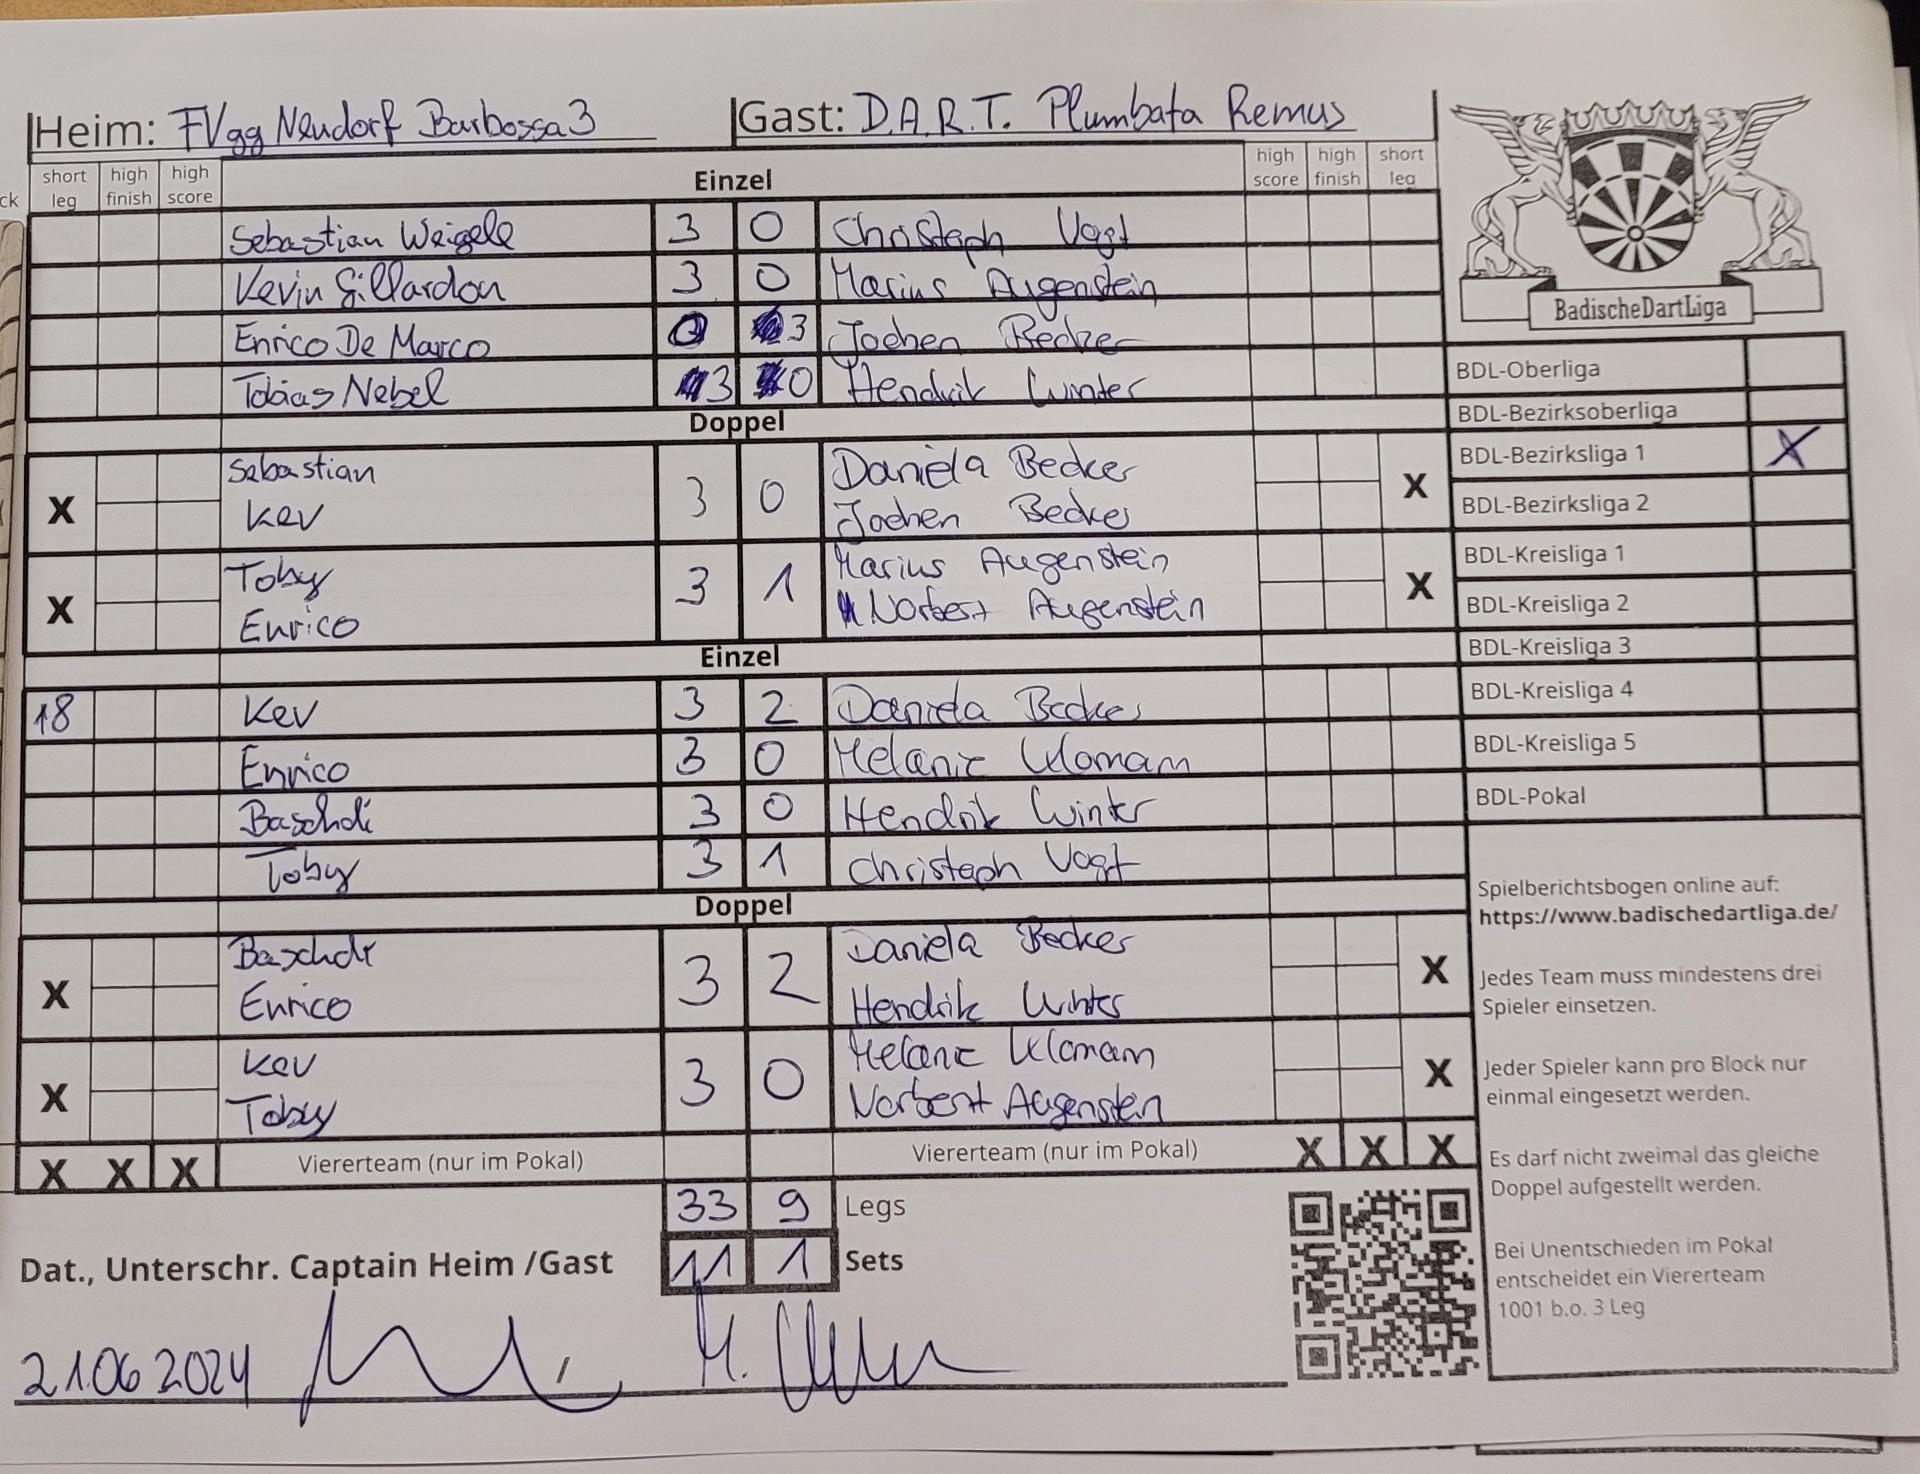 Heim: FVgg Neudorf Barbossa 3 Gast: D.A.R.T. Plumbata Remus
ck short leg high finish high score Einzel high score high finish short leg
Sebastian Weigele 3 0 Christoph Vogt
Kevin Gillardon 3 0 Marius Augenstein
Enrico De Marco 0 3 Jochen Becker
Tobias Nebel 3 0 Hendrik Winter
Doppel
Sebastian Daniela Becker
X 3 0 X
Kev Jochen Becker
Toby Marius Augenstein
X 3 1 X
Enrico Norbert Augenstein
Einzel
18 Kev 3 2 Daniela Becker
Enrico 3 0 Melanie
Baschdi 3 0 Hendrik Winter
Toby 3 1 Christoph Vogt
Doppel
Baschdi Daniela Becker
X 3 2 X
Enrico Hendrik Winter
Kev Melanie
X 3 0 X
Toby Norbert Augenstein
X X X Viererteam (nur im Pokal) Viererteam (nur im Pokal) X X X
33 9 Legs
Dat., Unterschr. Captain Heim /Gast 11 1 Sets
21.06 2024
BadischeDartLiga
BDL-Oberliga
BDL-Bezirksoberliga
BDL-Bezirksliga 1 X
BDL-Bezirksliga 2
BDL-Kreisliga 1
BDL-Kreisliga 2
BDL-Kreisliga 3
BDL-Kreisliga 4
BDL-Kreisliga 5
BDL-Pokal
Spielberichtsbogen online auf:
https://www.badischedartliga.de/
Jedes Team muss mindestens drei
Spieler einsetzen.
Jeder Spieler kann pro Block nur
einmal eingesetzt werden.
Es darf nicht zweimal das gleiche
Doppel aufgestellt werden.
Bei Unentschieden im Pokal
entscheidet ein Viererteam
1001 b.o. 3 Leg